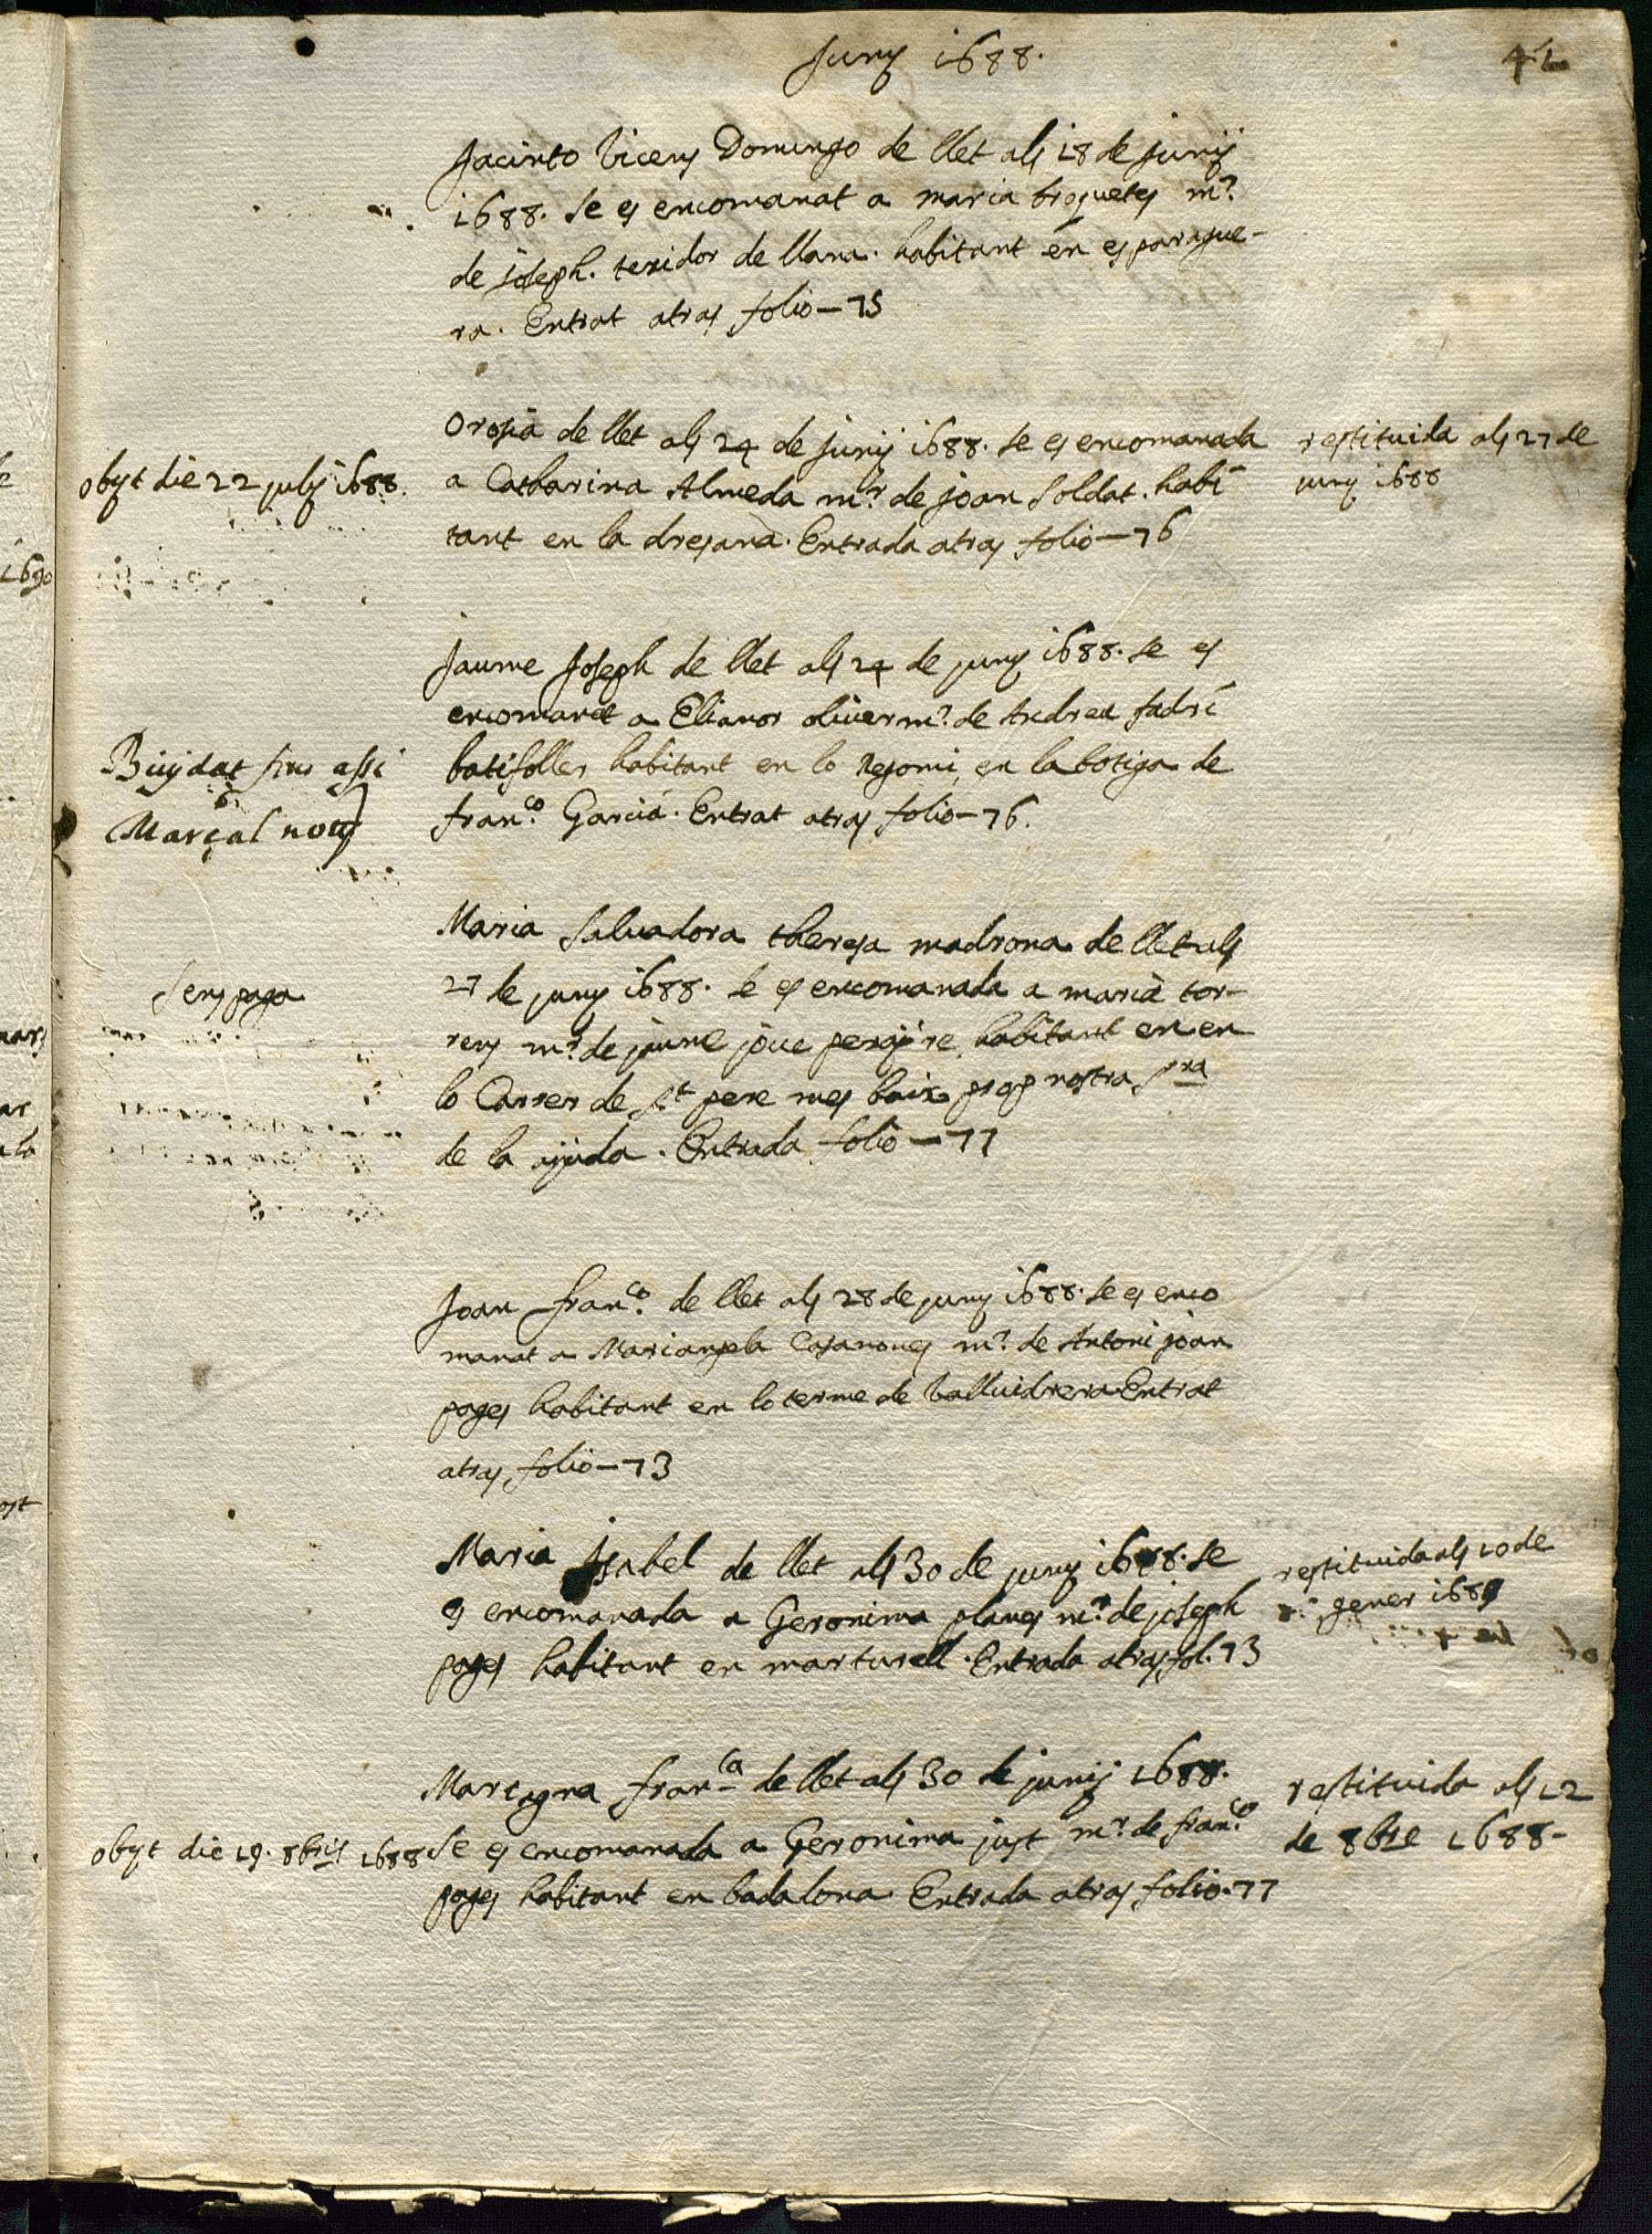 Juny 1688.
42
Jacinto Vicens Domingo de llet als 18 de junÿ
1688. se es encomanat a maria broquetes mr.
de Joseph. texidor de llana. habitant en esparague-
ra. Entrat atras folio—75
Orosia de llet als 24 de junÿ 1688. se es encomanada
a Catharina Almeda mr. de joan Soldat. habi
tant en la dresana. Entrada atras folio—76
obÿt die 22 julÿ 1688.
restituida als 27 de
juny 1688
Jaume Joseph de llet als 24 de juny 1688. se es
encomanat a Elianor oliver mr. de Andreu fadri
batifoller habitant en lo Regomi en la botiga de
franco. Garcia. Entrat atras folio—76.
Buÿdat fins assi
Marçal noty
Maria Salvadora theresa madrona de llet als
27 de juny 1688. se es encomanada a maria tor-
rens mr. de jaume jove perayre habitant en en
lo Carrer de St pere mes baix prop nostra Sra
de la ajuda. Entrada folio—77
Sens paga
Joan franco. de llet als 28 de juny 1688. se es enco
manat a Mariangela Casanoves mr. de Antoni joan
pages habitant en lo terme de Valluidrera Entrat
atras folio—73
Maria Isabel de llet als 30 de juny 1688. se
es encomanada a Geronima planes mr. de joseph
pages habitant en marturell. Entrada atras fol. 73
restituida als 10 de
gener 1689
Marsgna franca de llet als 30 de junÿ 1688.
se es encomanada a Geronima just mr. de franco
pages habitant en badalona Entrada atras folio. 77
obÿt die 19. 8bris 1688
restituida als 12
de 8bre 1688-